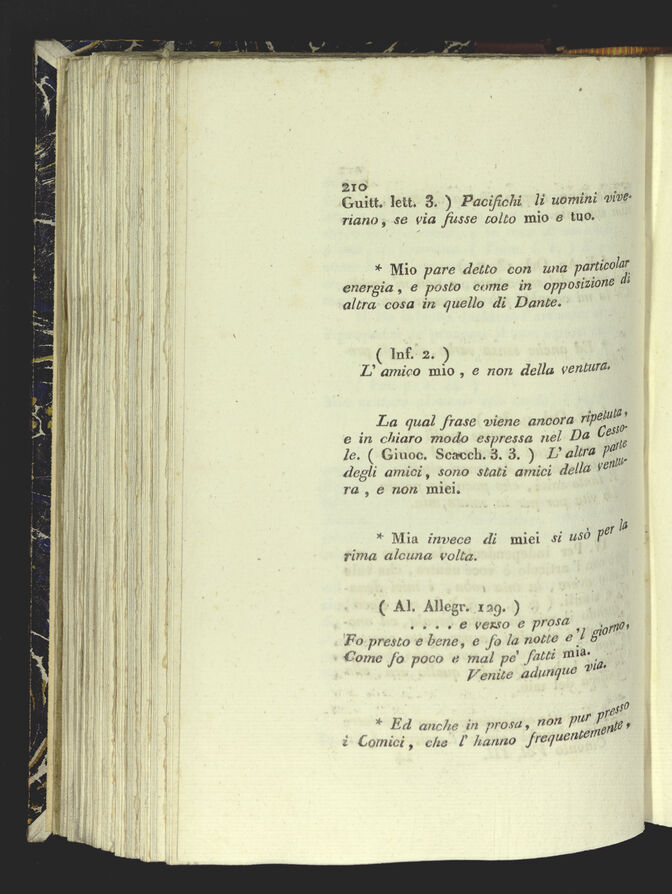 210
Guitt. lett. 3. ) Pacifichi li uomini vive-
riano, se via fusse tolto mio e tuo.
* Mio pare detto con una particolar
energia, e posto come in opposizione di
altra cosa in quello di Dante.
( Inf. 2. )
L' amico mio, e non della ventura.
La qual frase viene ancora ripetuta,
e in chiaro modo espressa nel Da Cesso-
le. ( Giuoc. Scacch. 3. 3. ) L' altra parte
degli amici, sono stati amici della ventu-
ra, e non miei.
* Mia invece di miei si usò per la
rima alcuna volta.
( Al. Allegr. 129. )
. . . . e verso e prosa
Fo presto e bene, e fo la notte e 'l giorno,
Come fo poco e mal pe' fatti mia.
Venite adunque via.
* Ed anche in prosa, non pur presso
i Comici, che l' hanno frequentemente,